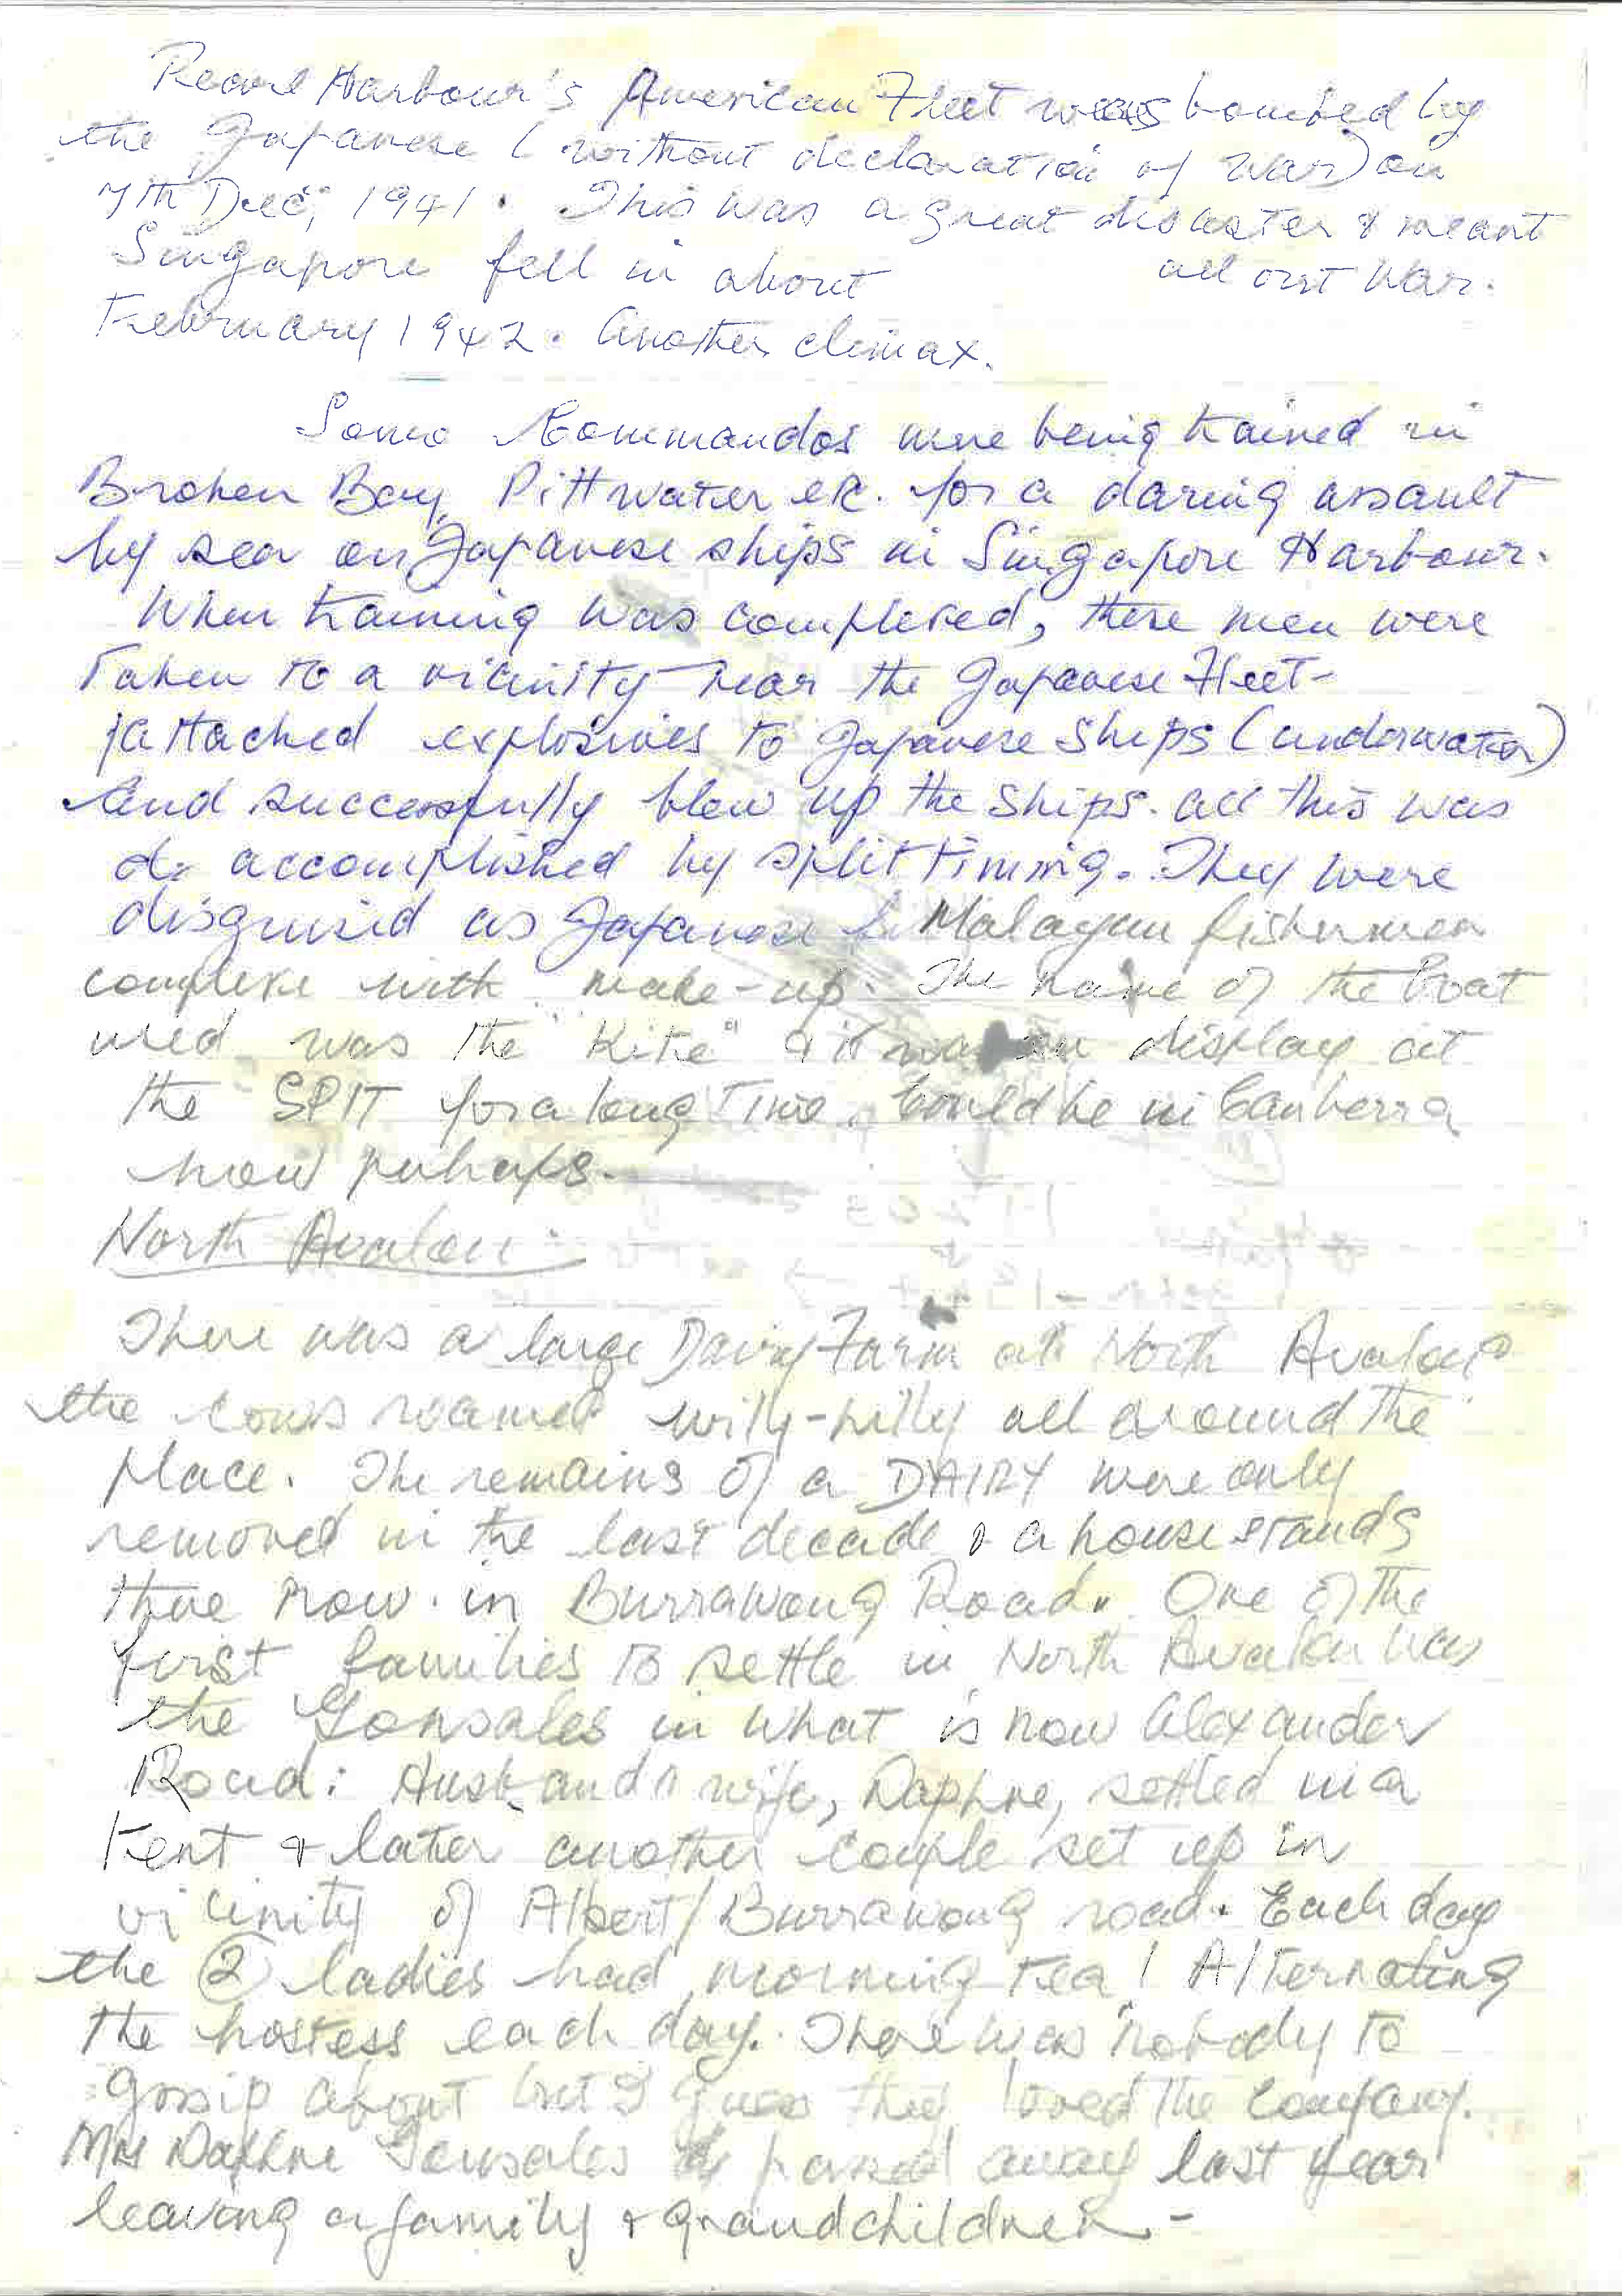 Pearl Harbour's American Fleet was bombed by
the Japanese (without declaration of war) on
7th Dec, 1941. This was a great disaster & meant
all out war.
Singapore fell in about
February 1942. Another climax.
Some Commandos were being trained in
Broken Bay, Pittwater etc. for a daring assault
by sea on Japanese ships in Singapore Harbour.
When training was completed, these men were
taken to a vicinity near the Japanese Fleet-
attached explosives to Japanese ships (underwater)
and successfully blew up the ships. All this was
accomplished by split timing. They were
disguised as Japanese & Malayan fishermen
complete with make-up. The name of the boat
used was the "Kite" & it was on display at
the SPIT for a long time. Could be in Canberra
now perhaps.
North Avalon:
There was a large Dairy Farm at North Avalon &
the cows roamed willy-nilly all around the
place. The remains of a DAIRY were only
removed in the last decade & a house stands
there now. in Burrawong Road. One of the
first families to settle in North Avalon was
the Gonsales in what is now Alexander
Road: Husband & wife, Daphne, settled in a
tent & later another couple set up in
vicinity of Albert/Burrawong road. Each day
the 2 ladies had morning tea! Alternating
the hostess each day. There was nobody to
gossip about but I guess they loved the company.
Mrs Daphne Gonsales passed away last year
leaving a family & grandchildren.-